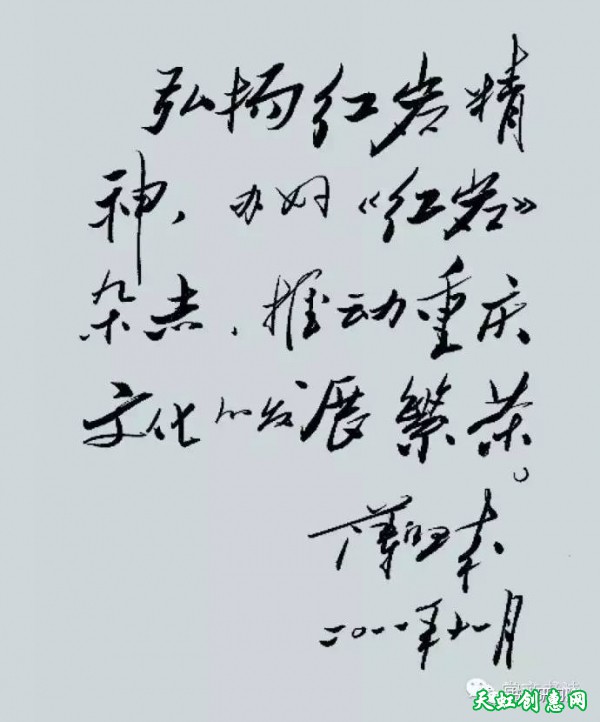 弘扬红岩精
神，办好《红岩》
杂志，推动重庆
文化的发展繁荣。
薄熙来
二〇一一年十一月
天虹创意网